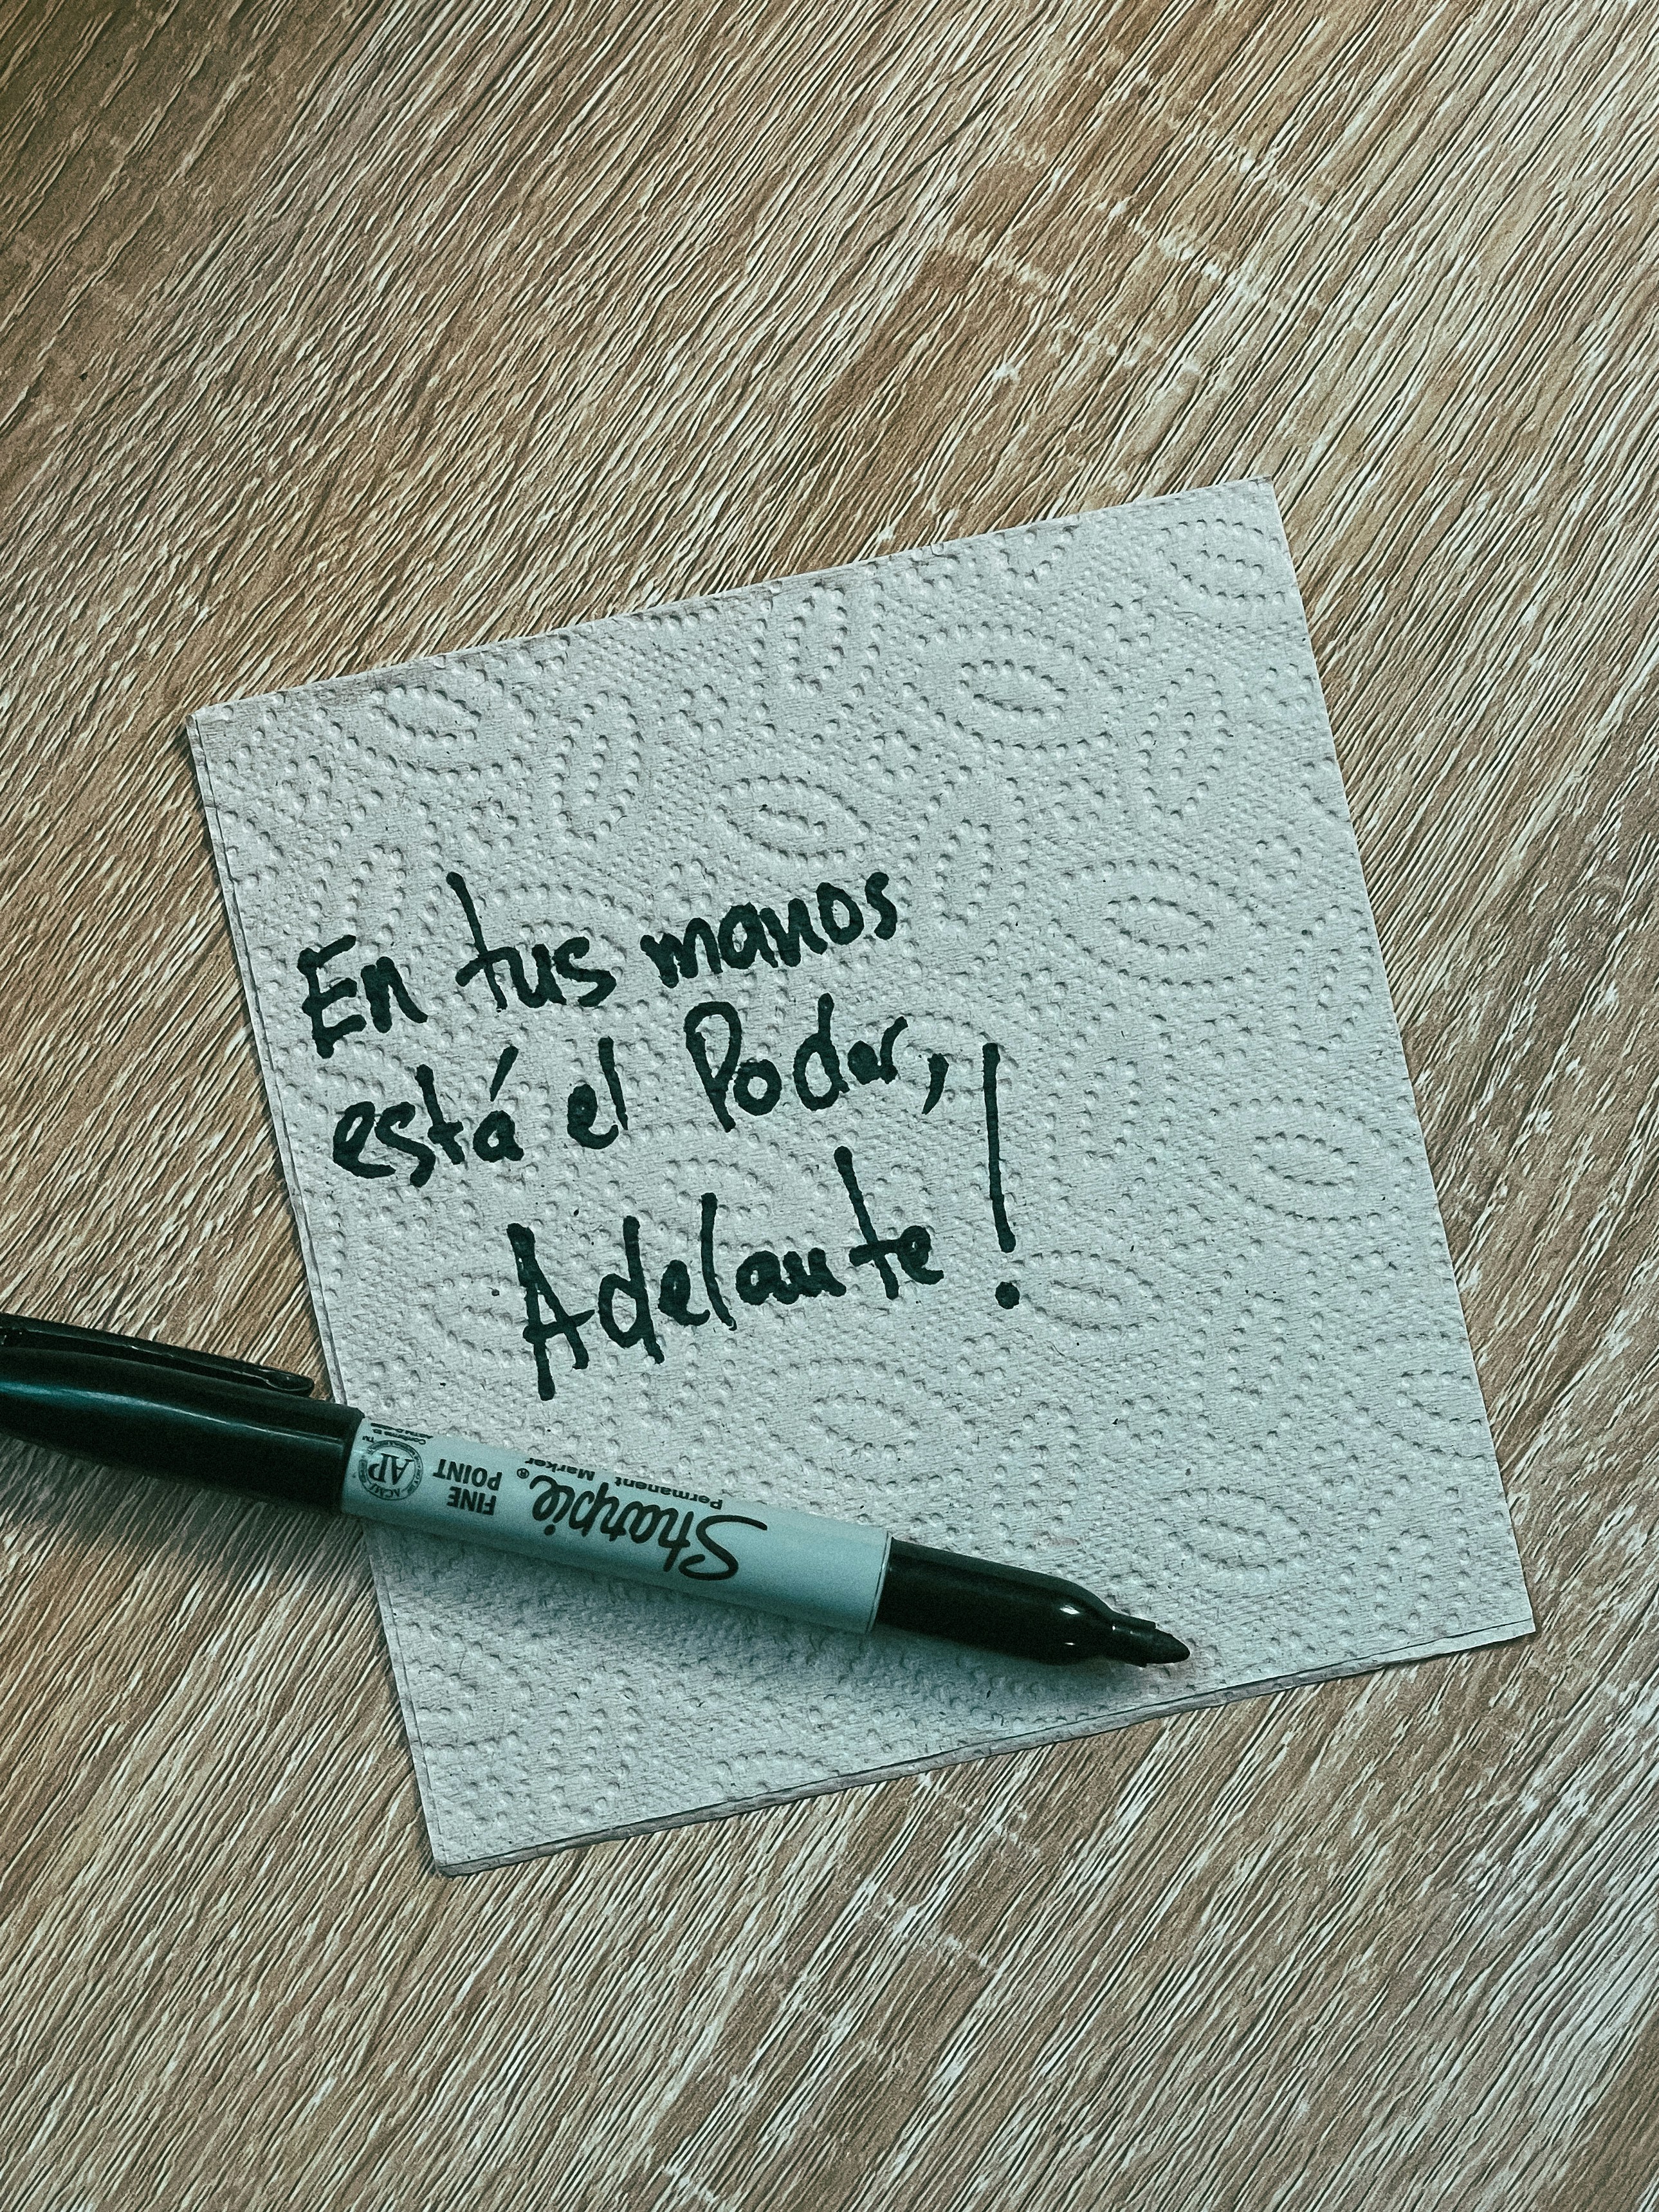 En tus manos
está el Poder,
Adelante!
Sharpie®
Permanent Marker
FINE
POINT
AP